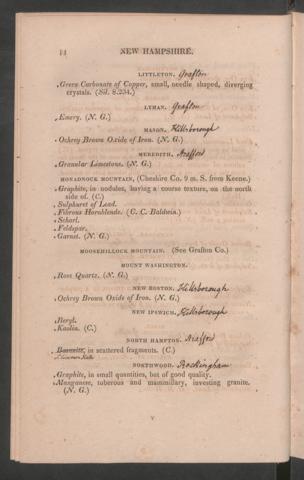 14 NEW HAMPSHIRE.
LITTLETON. Grafton
Green Carbonate of Copper, small, needle shaped, diverging
crystals. (Sil. 8.234.)
LYMAN. Grafton
Emery. (N. G.)
MASON. Hillsborough
Ochrey Brown Oxide of Iron. (N. G.)
MEREDITH. Strafford
Granular Limestone. (N. G.)
MONADNOCK MOUNTAIN, (Cheshire Co. 9 m. S. from Keene.)
Graphite, in nodules, having a coarse texture, on the north
side of. (C.)
Sulphuret of Lead.
Fibrous Hornblende. (C. C. Baldwin.)
Schorl.
Feldspar.
Garnet. (N. G.)
MOOSEHILLOCK MOUNTAIN. (See Grafton Co.)
MOUNT WASHINGTON.
Rose Quartz. (N. G.)
NEW BOSTON. Hillsborough
Ochrey Brown Oxide of Iron. (N. G.)
NEW IPSWICH. Hillsborough
Beryl.
Kaolin. (C.)
NORTH HAMPTON. Strafford
in scattered fragments. (C.)
NORTHWOOD. Rockingham
Graphite, in small quantities, but of good quality.
Manganese, tuberous and mammillary, investing granite.
(N. G.)